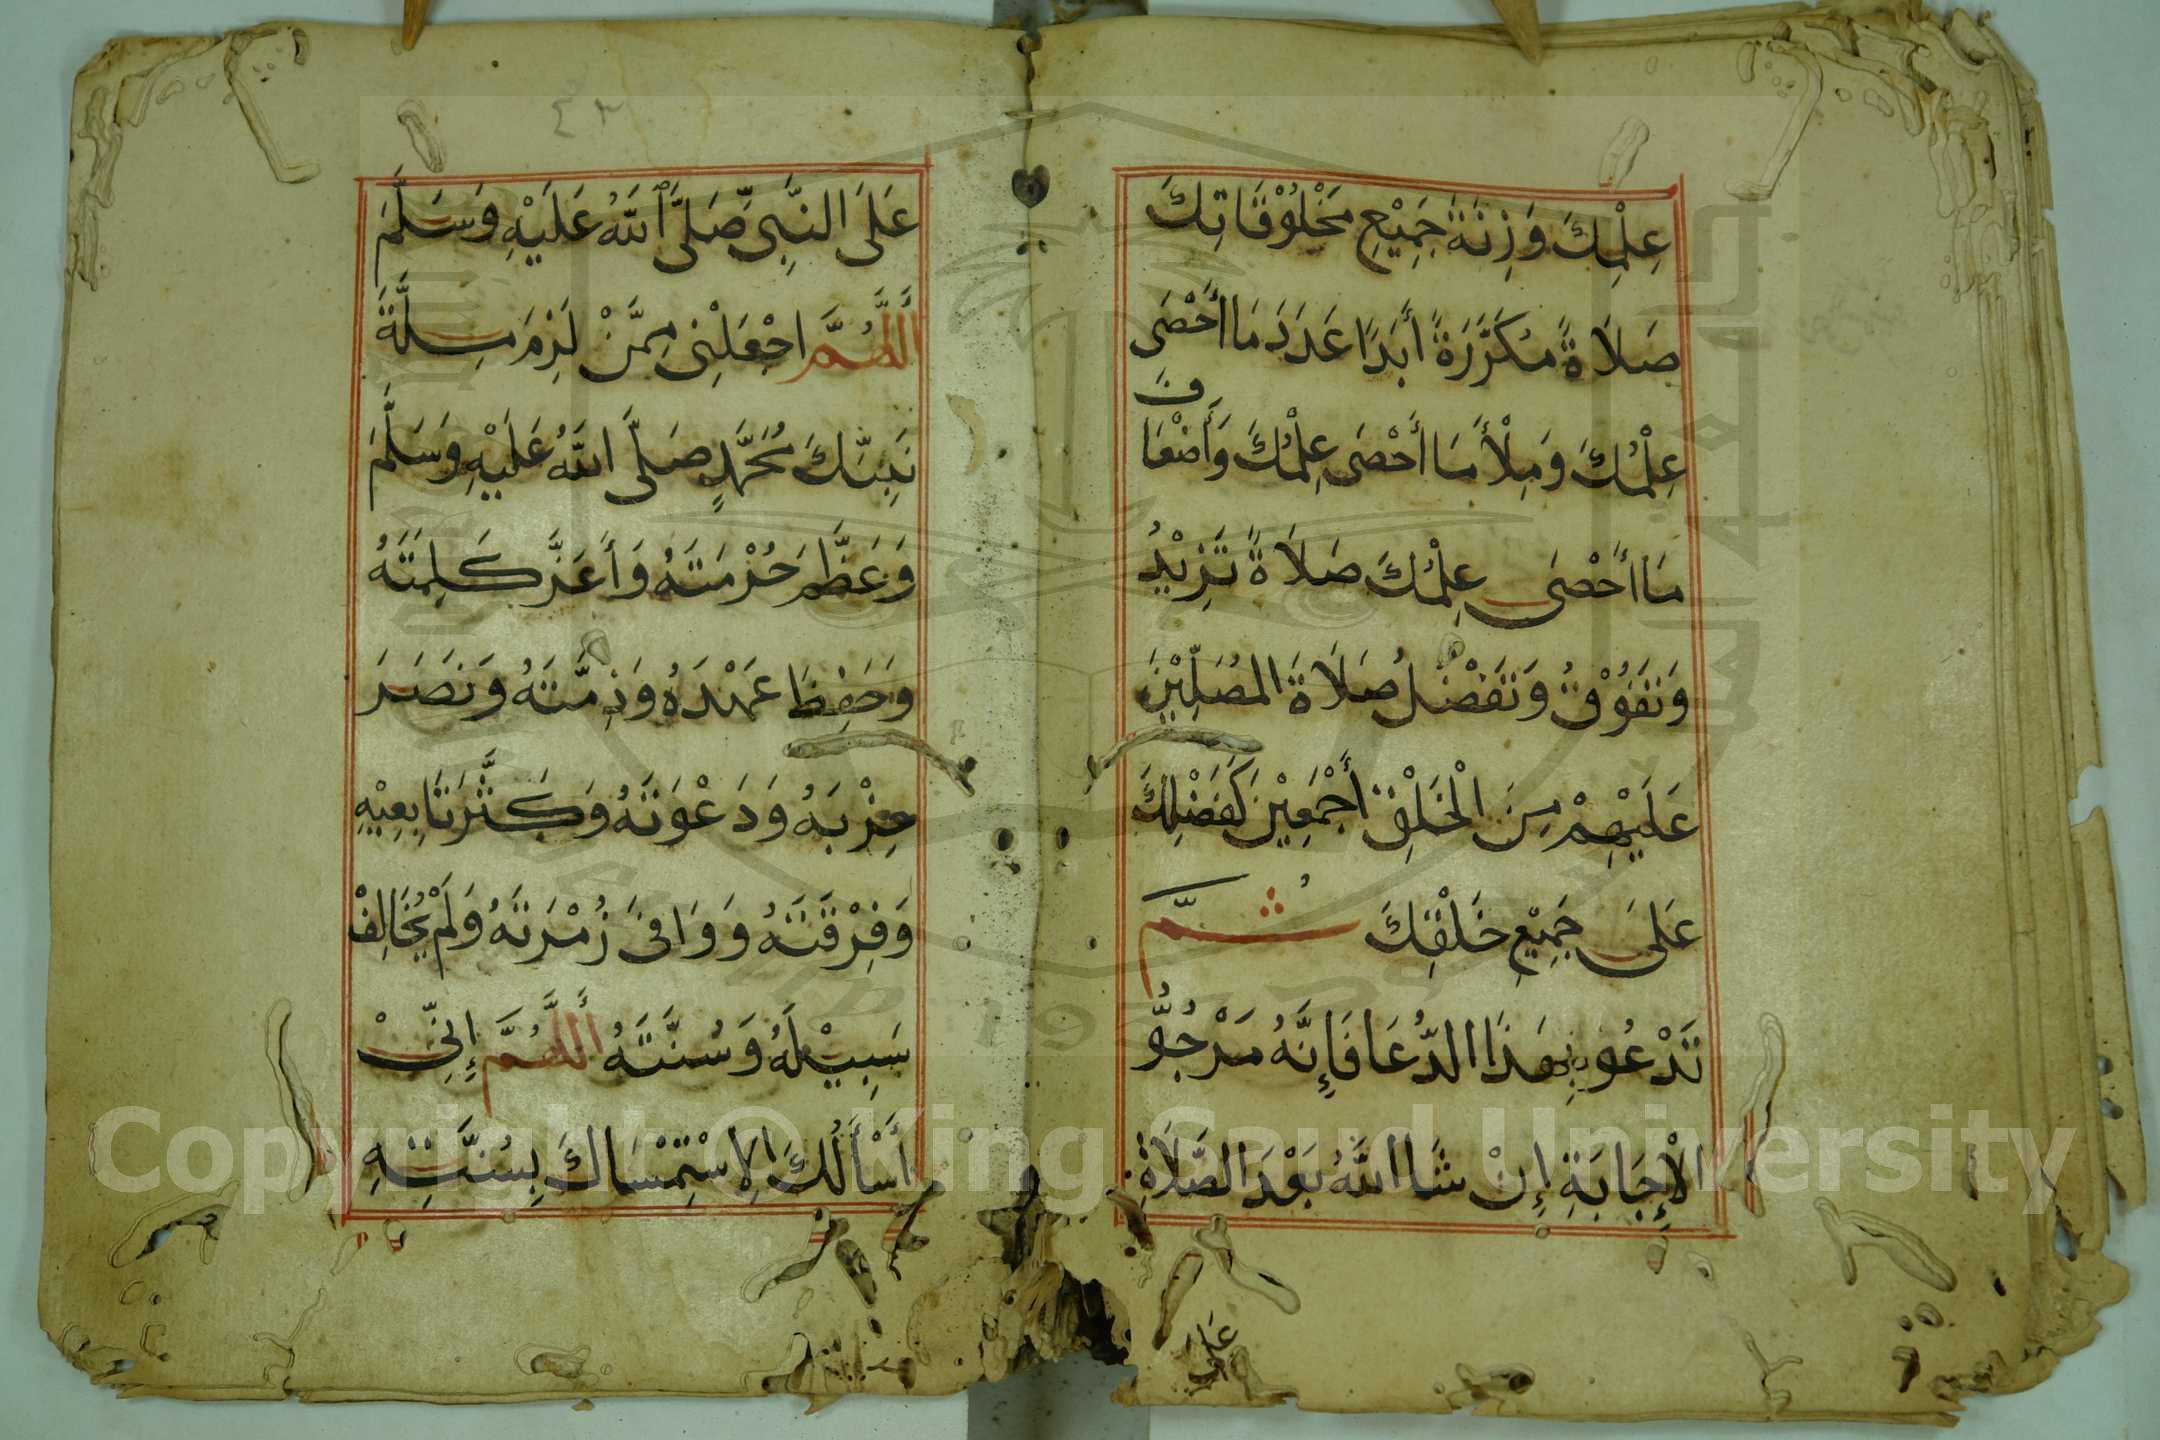 عِلْمِكَ وَزِنَةَ جَمِيْعِ مَخْلُوْقَاتِكَ
صَلَاةً مُكَرَّرَةً أَبَدًا عَدَدَ مَا أَحْصَى
عِلْمُكَ وَمِلْأَ مَا أَحْصَى عِلْمُكَ وَأَضْعَافَ
مَا أَحْصَى عِلْمُكَ صَلَاةً تَزِيْدُ
وَتَفُوْقُ وَتَفْضُلُ صَلَاةَ المُصَلِّيْنَ
عَلَيْهِمْ مِنَ الْخَلْقِ أَجْمَعِيْنَ كَفَضْلِكَ
عَلَى جَمِيْعِ خَلْقِكَ ثُمَّ
تَدْعُو بِهَذَا الدُّعَا فَإِنَّهُ مَرْجُوُّ
الْإِجَابَةِ إِنْ شَا اللَّهُ بَعْدَ الصَّلَاةِ
عَلَى
٣٢
عَلَى النَّبِيِّ صَلَّى اللَّهُ عَلَيْهِ وَسَلَّمَ
أَللَّهُمَّ اجْعَلْنِى مِمَّنْ لَزِمَ مِلَّةَ
نَبِيِّكَ مُحَمَّدٍ صَلَّى اللَّهُ عَلَيْهِ وَسَلَّمَ
وَعَظَّمَ حُرْمَتَهُ وَأَعَزَّ كَلِمَتَهُ
وَحَفِظَ عَهْدَهُ وَذِمَّتَهُ وَنَصَرَ
حِزْبَهُ وَدَعْوَتَهُ وَكَثَّرَ تَابِعِيْهِ
وَفِرْقَتَهُ وَوَافَى زُمْرَتَهُ وَلَمْ يُخَالِفْ
سَبِيْلَهُ وَسُنَّتَهُ أَللَّهُمَّ إِنِّىْ
أَسْأَلُكَ الِاسْتِمْسَاكَ بِسُنَّتِهِ
Copyright © King Saud University